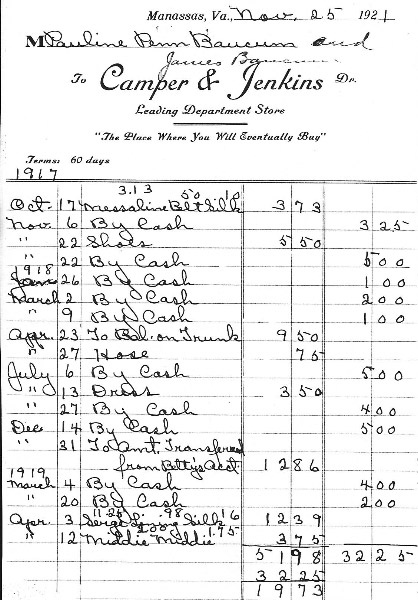 Manassas, Va., Nov. 25 1921
M Pauline Penn Baucum and
James
To Camper & Jenkins Dr.
Leading Department Store
"The Place Where You Will Eventually Buy"
Terms: 60 days
1917
3.13 50 10
Oct. 17 Messaline Belt Silk 3 73
Nov. 6 By Cash 3 25
" 22 Shoes 5 50
" 22 By Cash 5 00
1918
Jan 26 By Cash 1 00
March 2 By Cash 2 00
" 9 By Cash 1 00
Apr. 23 To Bal. on Trunk 9 50
" 27 Hose 75
July 6 By Cash 5 00
" 13 Dress 3 50
" 27 By Cash 4 00
Dec 14 By Cash 5 00
" 31 To Amt. Transferred
from Betty's Acct 12 86
1919
March 4 By Cash 4 00
" 20 By Cash 2 00
11.25 .98 16
Apr. 3 Serge Silk 12 39
2.00 1.75
" 12 Middie Middie 3 75
51 98 32 25
32 25
19 73